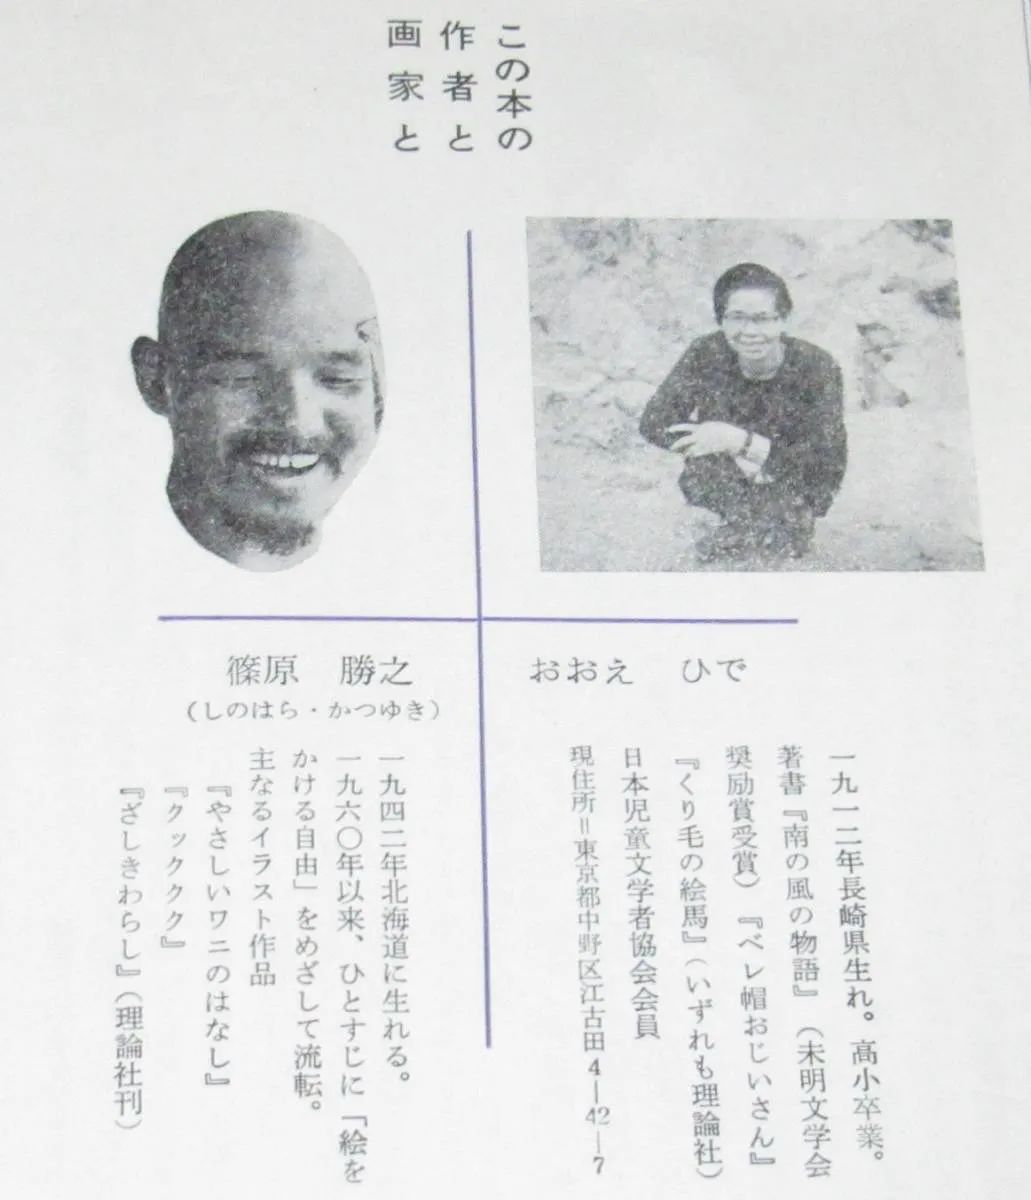 この本の
作者と
画家と
おおえ ひで
一九一二年長崎県生れ。高小卒業。
著書『南の風の物語』(未明文学会
奨励賞受賞)『ベレ帽おじいさん』
『くり毛の絵馬』(いずれも理論社)
日本児童文学者協会会員
現住所=東京都中野区江古田4―42―7
篠原 勝之
(しのはら・かつゆき)
一九四二年北海道に生れる。
一九六〇年以来、ひとすじに「絵を
かける自由」をめざして流転。
主なるイラスト作品
『やさしいワニのはなし』
『クックククク』
『ざしきわらし』(理論社刊)